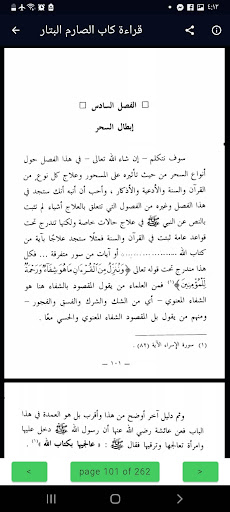 ٤:١٣
قراءة كاب الصارم البتار
□ الفصل السادس □
إبطال السحر
سوف نتكلم - إن شاء الله تعالى - في هذا الفصل حول
أنواع السحر من حيث تأثيره على المسحور وعلاج كل نوع، من
القرآن والسنة والأدعية والأذكار، وأحب أن أنبه أنك ستجد في
هذا الفصل وغيره من الفصول التي تتعلق بالعلاج أشياء لم تثبت
بالنص عن النبي ﷺ في علاج حالات خاصة ولكنها تندرج تحت
قواعد عامة ثبتت في القرآن والسنة فمثلًا ستجد علاجًا بآية من
كتاب الله .................. أو آيات من سور متفرقة ... فكل
هذا مندرج تحت قوله تعالى ﴿وَنُنَزِّلُ مِنَ الْقُرْءَانِ مَا هُوَ شِفَآءٌ وَرَحْمَةٌ
لِّلْمُؤْمِنِينَ﴾(١) فمن العلماء من يقول المقصود بالشفاء هنا هو
الشفاء المعنوي - أي من الشك والشرك والفسق والفجور -
ومنهم من يقول بل المقصود الشفاء المعنوي والحسي معًا.
(١) سورة الإسراء الآية (٨٢).
- ١٠١ -
وثم دليل آخر أوضح من هذا وأقرب بل هو العمدة في هذا
الباب فعن عائشة رضي الله عنها أن رسول الله ﷺ دخل عليها
وامرأة تعالجها وترقيها فقال ﷺ : « عالجيها بكتاب الله »(١).
<
page 101 of 262
>